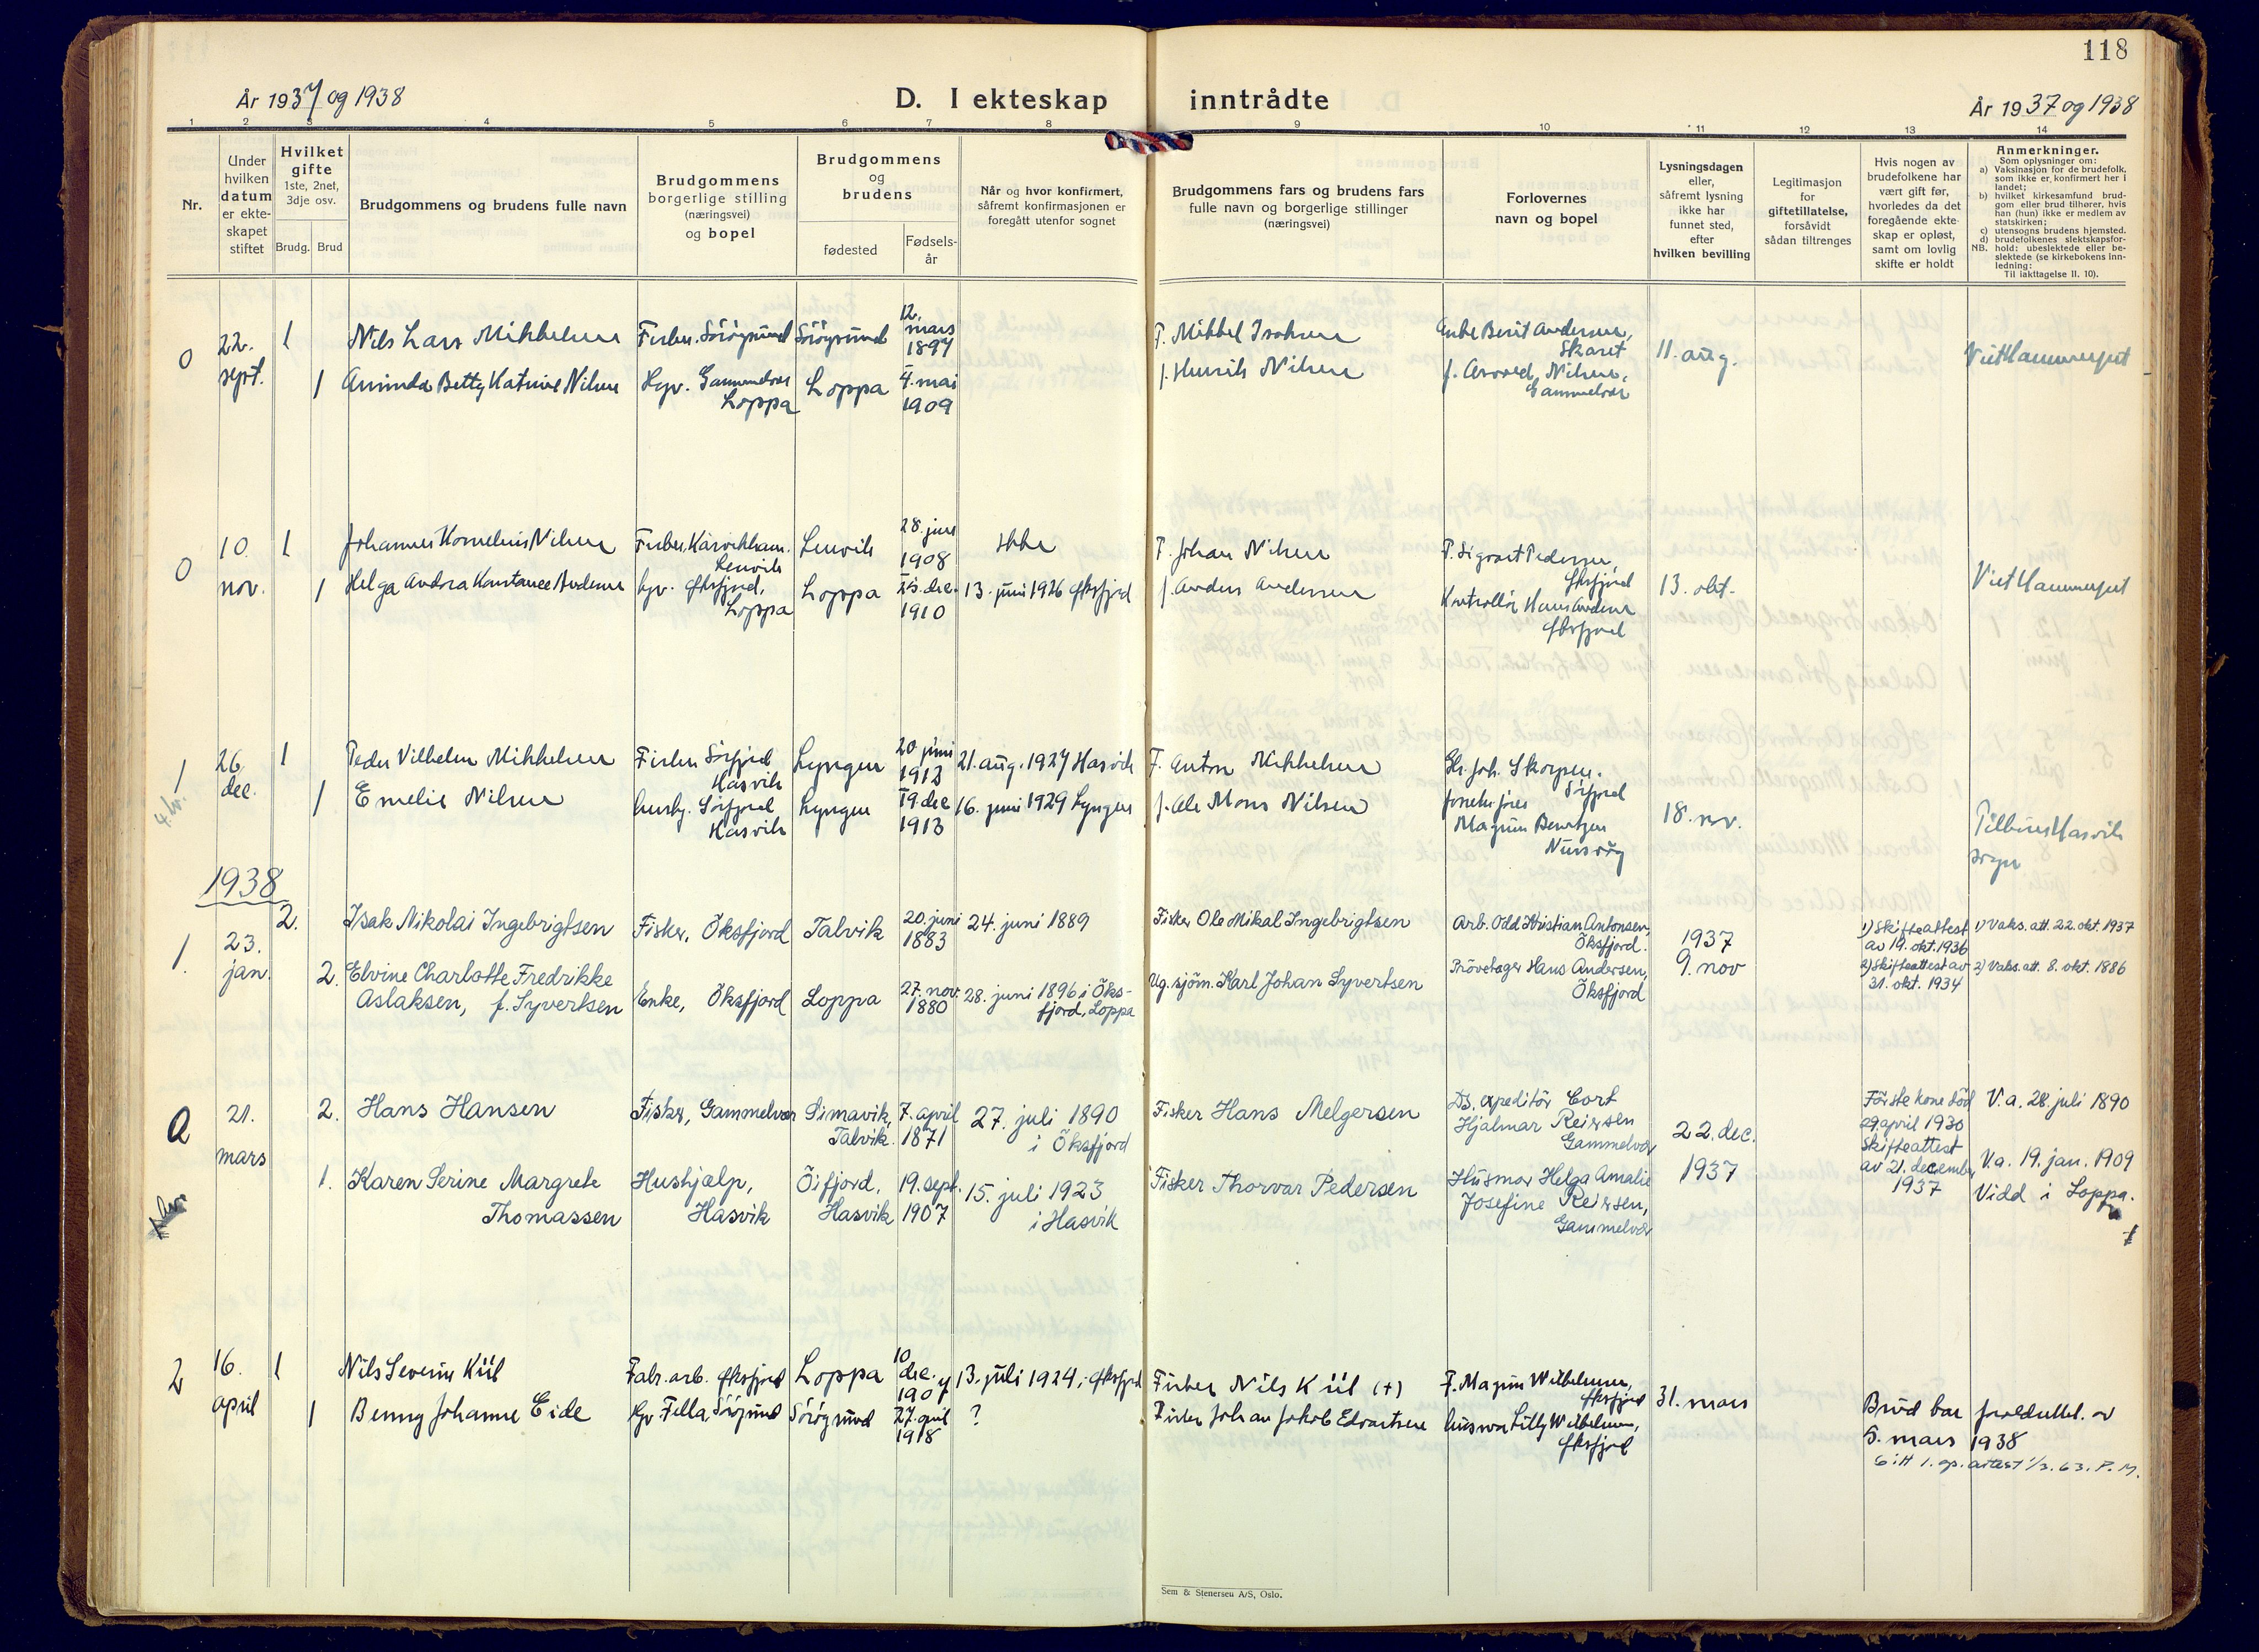 118
År 1937 og 1938
D. I ekteskap inntrådte
År 1937 og 1938
1 2 3 4 5 6 7 8 9 10 11 12 13 14
Nr.
Under hvilken datum er ekte-skapet stiftet
Hvilket gifte
1ste, 2net, 3dje osv.
Brudg. Brud
Brudgommens og brudens fulle navn
Brudgommens borgerlige stilling (næringsvei) og bopel
Brudgommens og brudens
fødested
Fødsels-år
Når og hvor konfirmert, såfremt konfirmasjonen er foregått utenfor sognet
Brudgommens fars og brudens fars fulle navn og borgerlige stillinger (næringsvei)
Forlovernes navn og bopel
Lysningsdagen eller, såfremt lysning ikke har funnet sted, efter hvilken bevilling
Legitimasjon for giftetillatelse, forsåvidt sådan tiltrenges
Hvis nogen av brudefolkene har vært gift før, hvorledes da det foregående ekte-skap er opløst, samt om lovlig skifte er holdt
Anmerkninger.
Som oplysninger om:
a) Vaksinasjon for de brudefolk. som ikke er konfirmert her i landet;
b) hvilket kirkesamfund brud-gom eller brud tilhører, hvis han (hun) ikke er medlem av statskirken;
c) utensogns brudens hjemsted.
d) brudefolkenes slektskapsfor-hold: ubeslektede eller be-slektede (se kirkebokens inn-ledning:
NB. Til iakttagelse II. 10).
0 22. sept. 1 Nils Lars Mikkelsen
Fisker. Sørøysund Sørøysund 12. mars 1897
F. Mikkel Isaksen
Anke Berit Andersen, Skaret
11. aug.
Viet Hammerfest
1 Aminda Betty Katrine Nilsen
Hgv. Gammelvær Loppa Loppa 4. mai 1909
f. Henrik Nilsen
f. Nilsen, Gammelvær
0 10. nov. 1 Johannes Kornelius Nilsen
Fisker, Lenvik Lenvik 28. juni 1908 Ikke
F. Johan Nilsen
F. Sigvart Pedersen, Øksfjord
13. okt.
Viet Hammerfest
1 Helga Andrea Konstance Andersen
hgv. Øksfjord, Loppa Loppa 25. dec. 1910 13. juni 1926 Øksfjord
f. Anders Andersen
Kontrollør Hans Andersen Øksfjord
1 26. dec. 1 Peder Vilhelm Mikkelsen
Fisker Sørfjord Hasvik Lyngen 20. juni 1912 21. aug. 1927 Hasvik
F. Anton Mikkelsen
Joh. Skorpen. Sørfjord
1 Emelie Nilsen
Sørfjord Hasvik Lyngen 19. dec 1913 16. juni 1929 Lyngen
f. Ole Mons Nilsen
Magnus Berntzen
18. nov.
Hasvik sogn
4. kv.
1938
1. 23. jan. 2. Isak Nikolai Ingebrigtsen
Fisker, Öksfjord Talvik 20. juni 1883 24. juni 1889
Fisker Ole Mikal Ingebrigtsen
Arb. Odd Kristian Antonsen, Öksfjord.
1937 9. nov
1) Skifteattest av 19. okt. 1936
1) Vaks. att. 22. okt. 1937
2. Elvine Charlotte Fredrikke Aslaksen, f. Syvertsen
Enke, Öksfjord Loppa 27. nov. 1880 28. juni 1896 i Öks-fjord, Loppa
Ug. sjöm. Karl Johan Syvertsen
Prövetager Hans Andersen, Öksfjord
2) Skifteattest av 31. okt. 1934
2) Vaks. att. 8. okt. 1886
0 21. mars 2. Hans Hansen
Fisker, Gammelvær Simavik, Talvik. 7. april 1871 27. juli 1890 i Öksfjord
Fisker Hans Melgersen
Ds. expeditör Cort Hjalmar Reiersen Gammelvær
22. dec. 1937
Förste kone död 29. april 1930 Skifteattest av 21. december 1937
V. a. 28. juli 1890
1. Karen Serine Margrete Thomassen
Hushjælp, Hasvik Öifjord, Hasvik 19. sept. 1907 15. juli 1923 i Hasvik
Fisker Thorvar Pedersen
Husmor Helga Amalie Josefine Reiersen, Gammelvær
V. a. 19. jan. 1909
Vidd i Loppa.
2 16. april 1 Nils Severin Kiil
Fabr. arb. Øksfjord Loppa 10 dec. 1907 13. juli 1924, Øksfjord
Fisker Nils Kiil (+)
F. Magnus Wilhelmsen, Øksfjord
31. mars
1 Benny Johanne Eide
Hgv. Fella, Sørøysund Sørøysund 27. april 1918 ?
Fisker Johan Jakob Edvartsen
husmor Lilly Wilhelmsen, Øksfjord
Brud har av
5. mars 1938
Gitt 1. gp. attest 1/3. 63. P. M.
Sem & Stenersen A/S, Oslo.